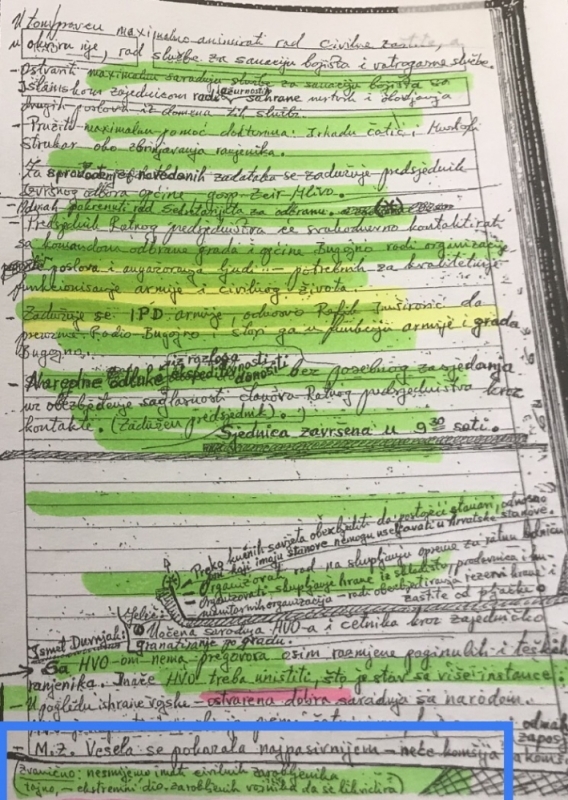 U tom pravcu maximalno animirati rad Civilne zaštite, a
u okviru nje, rad službe za sanaciju bojišta i vatrogasne službe.
- Ostvariti maximalnu saradnju službe za sanaciju bojišta sa
Islamskom zajednicom radi ažurnosti sahrane mrtvih i
drugih poslova iz domena službi.
- Pružiti maximalnu pomoć doktorima: Irhadu Čatić, Mustafi
Strukar oko zbrinjavanja ranjenika.
Za sprovođenje navedenih zadataka se zadužuje predsjednik
Izvršnog odbora općine gosp. Zeir Mlivo.
- Odmah pokrenuti rad Sekretarijata za odbranu.
- Predsjednik Ratnog predsjedništva će svakodnevno kontaktirati
sa komandom odbrane grada i općine Bugojno radi organizacije
poslova i angažovanja ljudi - potrebnih za kvalitetnije
funkcionisanje armije i civilnog života.
- Zadužuje se IPD armije, odnosno Rafik da
preuzme Radio-Bugojno i stavi ga u funkciju armije i grada
Bugojno.
iz razloga
- Naredne odluke ekspeditivnosti donositi bez posebnog zasjedanja
uz obezbjeđenje saglasnosti članova Ratnog predsjedništva kroz
kontakte. (Zadužen predsjednik).
Sjednica završena u 9³⁰ sati.
- Preko kućnih savjeta obezbijediti da postojeći stanari, odnosno
oni koji imaju stanove nemogu useljavati u hrvatske stanove.
- Organizovati rad na skupljanju opreme za ratnu bolnicu
- Organizovati skupljanje hrane iz skladišta, prodavnica i
humanitarnih organizacija - radi obezbjeđivanja rezervi hrane i
zaštite od pljačke.
Ismet Durnjak: Uočena saradnja HVO-a i četnika kroz zajedničko
granatiranje po gradu.
→ Sa HVO-om nema pregovora osim razmjene poginulih i teških
ranjenika. Inače HVO treba uništiti, što je stav sa više instance.
- U pogledu ishrane vojske - ostvarena dobra saradnja sa narodom.
- M.Z. Vesela se pokazala najpasivnijem - neće komšija
Zvanično: nesmijemo imati civilnih zarobljenika
Tajno, - ekstremni dio zarobljenih vojnika da se likvidira